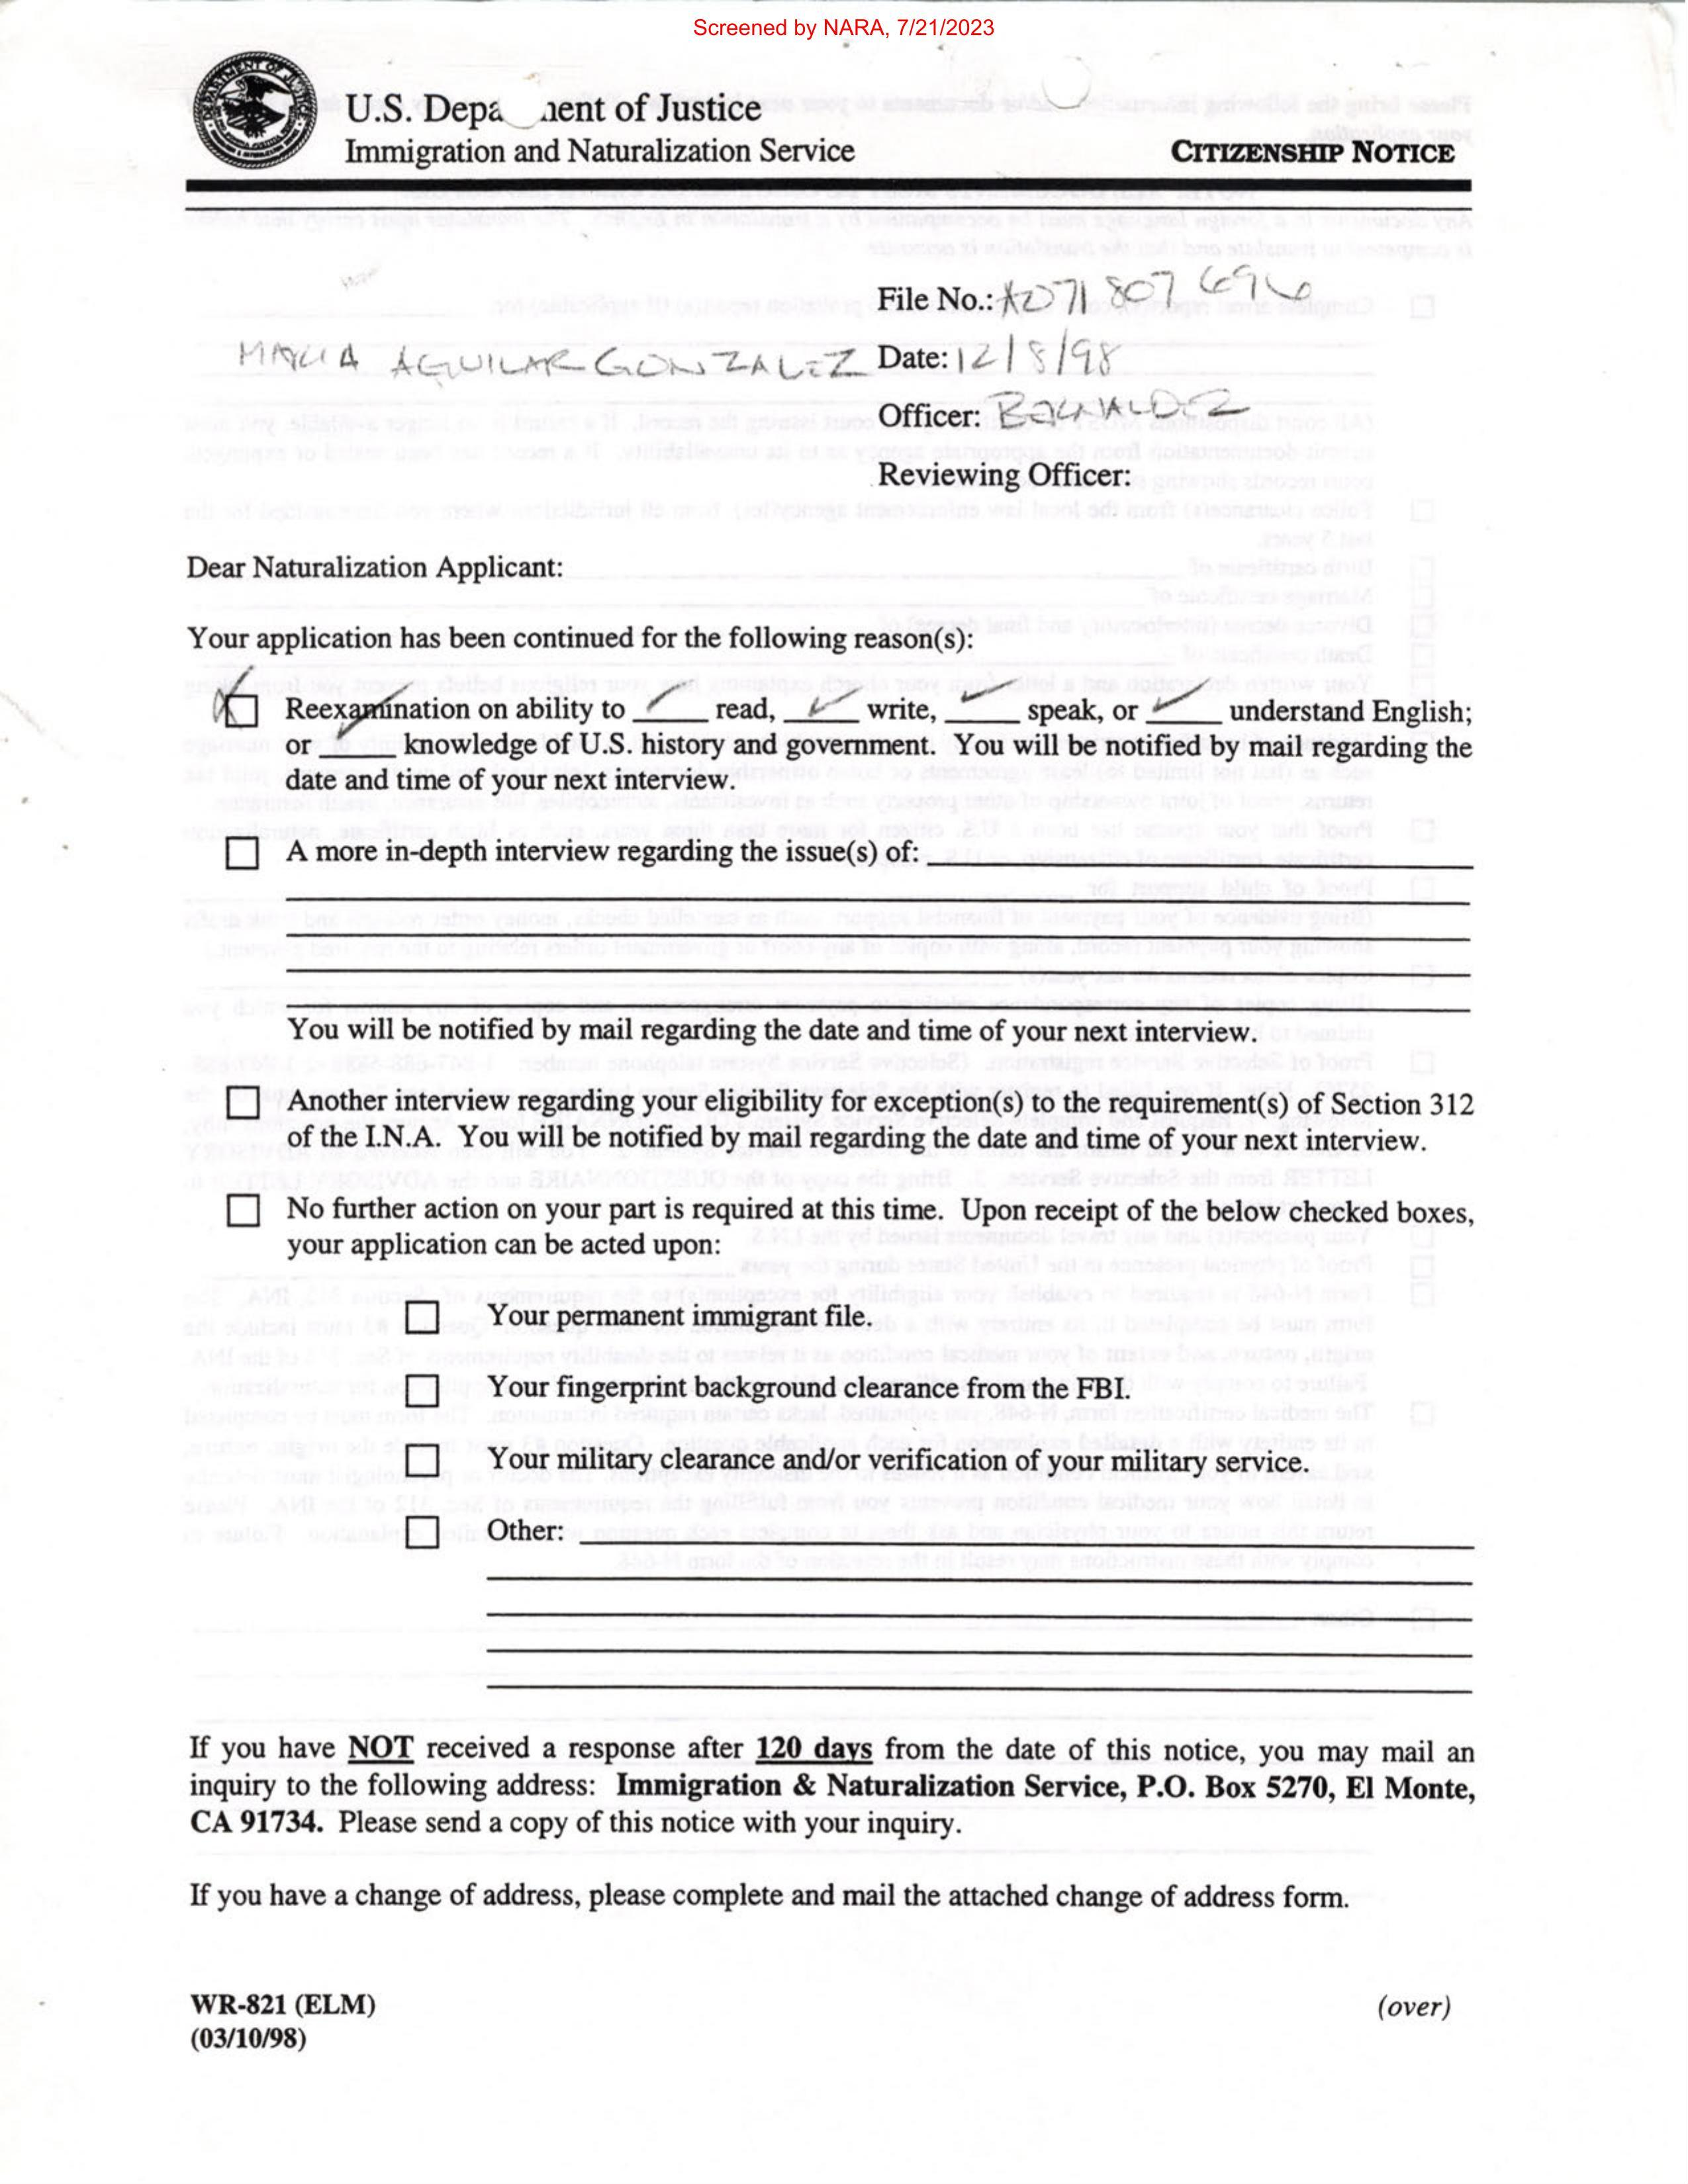 Screened by NARA, 7/21/2023
U.S. Depa ment of Justice
Immigration and Naturalization Service
CITIZENSHIP NOTICE
File No.: A071 807 696
MARIA AGUILAR GONZALEZ Date: 12/8/98
Officer:
Reviewing Officer:
Dear Naturalization Applicant:
Your application has been continued for the following reason(s):
Reexamination on ability to ✓ read, ✓ write, ✓ speak, or ✓ understand English;
or ✓ knowledge of U.S. history and government. You will be notified by mail regarding the
date and time of your next interview.
A more in-depth interview regarding the issue(s) of:
You will be notified by mail regarding the date and time of your next interview.
Another interview regarding your eligibility for exception(s) to the requirement(s) of Section 312
of the I.N.A. You will be notified by mail regarding the date and time of your next interview.
No further action on your part is required at this time. Upon receipt of the below checked boxes,
your application can be acted upon:
Your permanent immigrant file.
Your fingerprint background clearance from the FBI.
Your military clearance and/or verification of your military service.
Other:
If you have NOT received a response after 120 days from the date of this notice, you may mail an
inquiry to the following address: Immigration & Naturalization Service, P.O. Box 5270, El Monte,
CA 91734. Please send a copy of this notice with your inquiry.
If you have a change of address, please complete and mail the attached change of address form.
WR-821 (ELM)
(03/10/98)
(over)